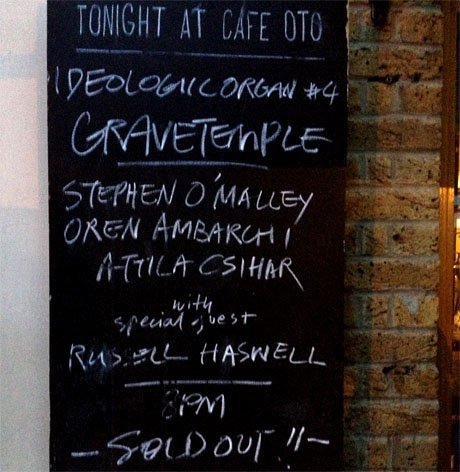 TONIGHT AT CAFE OTO
IDEOLOGIC ORGAN #4
GRAVETEMPLE
STEPHEN O'MALLEY
OREN AMBARCHI
ATTILA CSIHAR
with
special guest
RUSSELL HASWELL
8PM
— SOLD OUT !! —